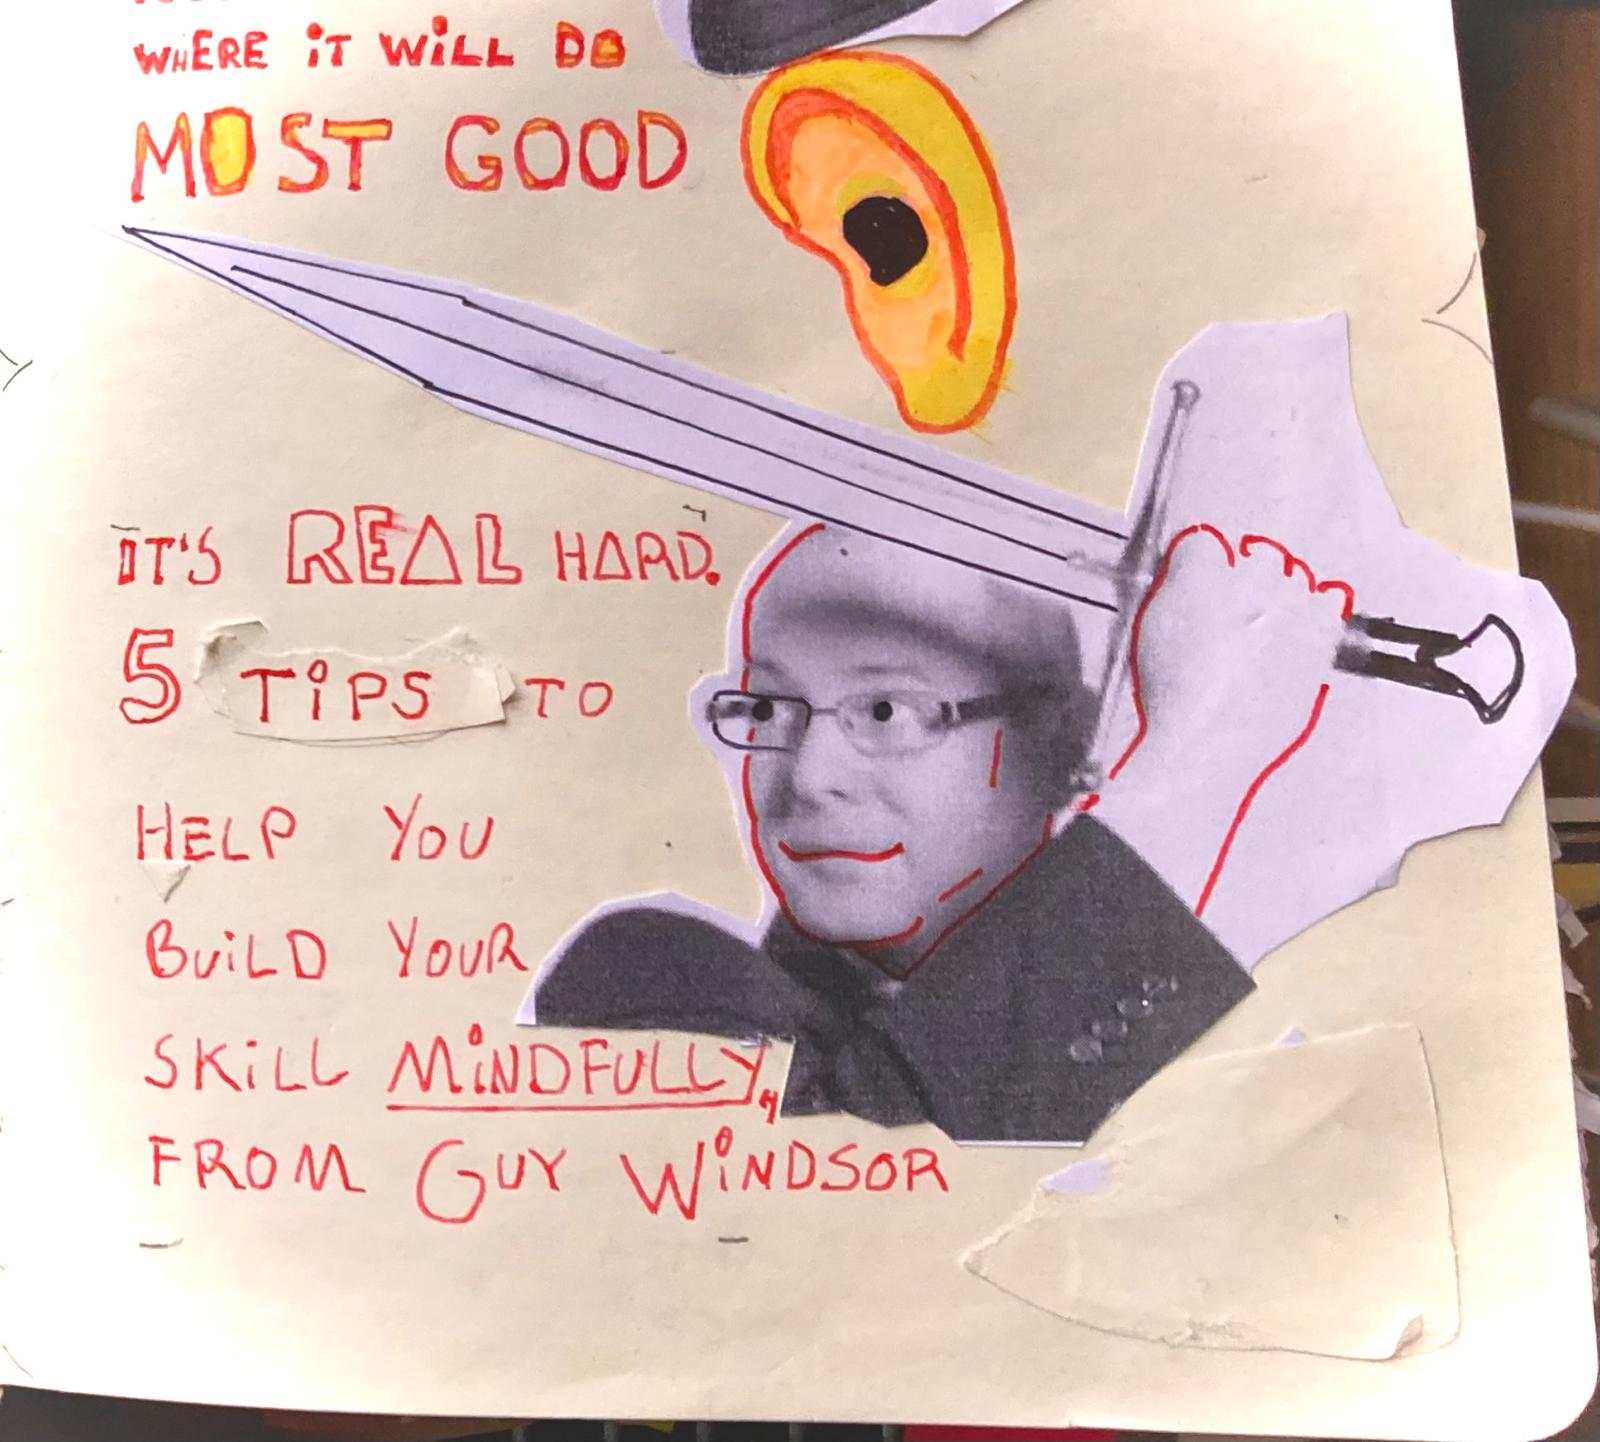 WHERE IT WILL DO
MOST GOOD
IT'S REAL HARD.
5 TIPS TO
HELP YOU
BUILD YOUR
SKILL MINDFULLY,
FROM GUY WINDSOR